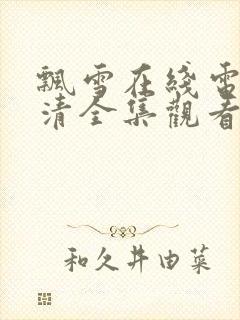 飄雪在綫電
清全集觀看
和久井由菜